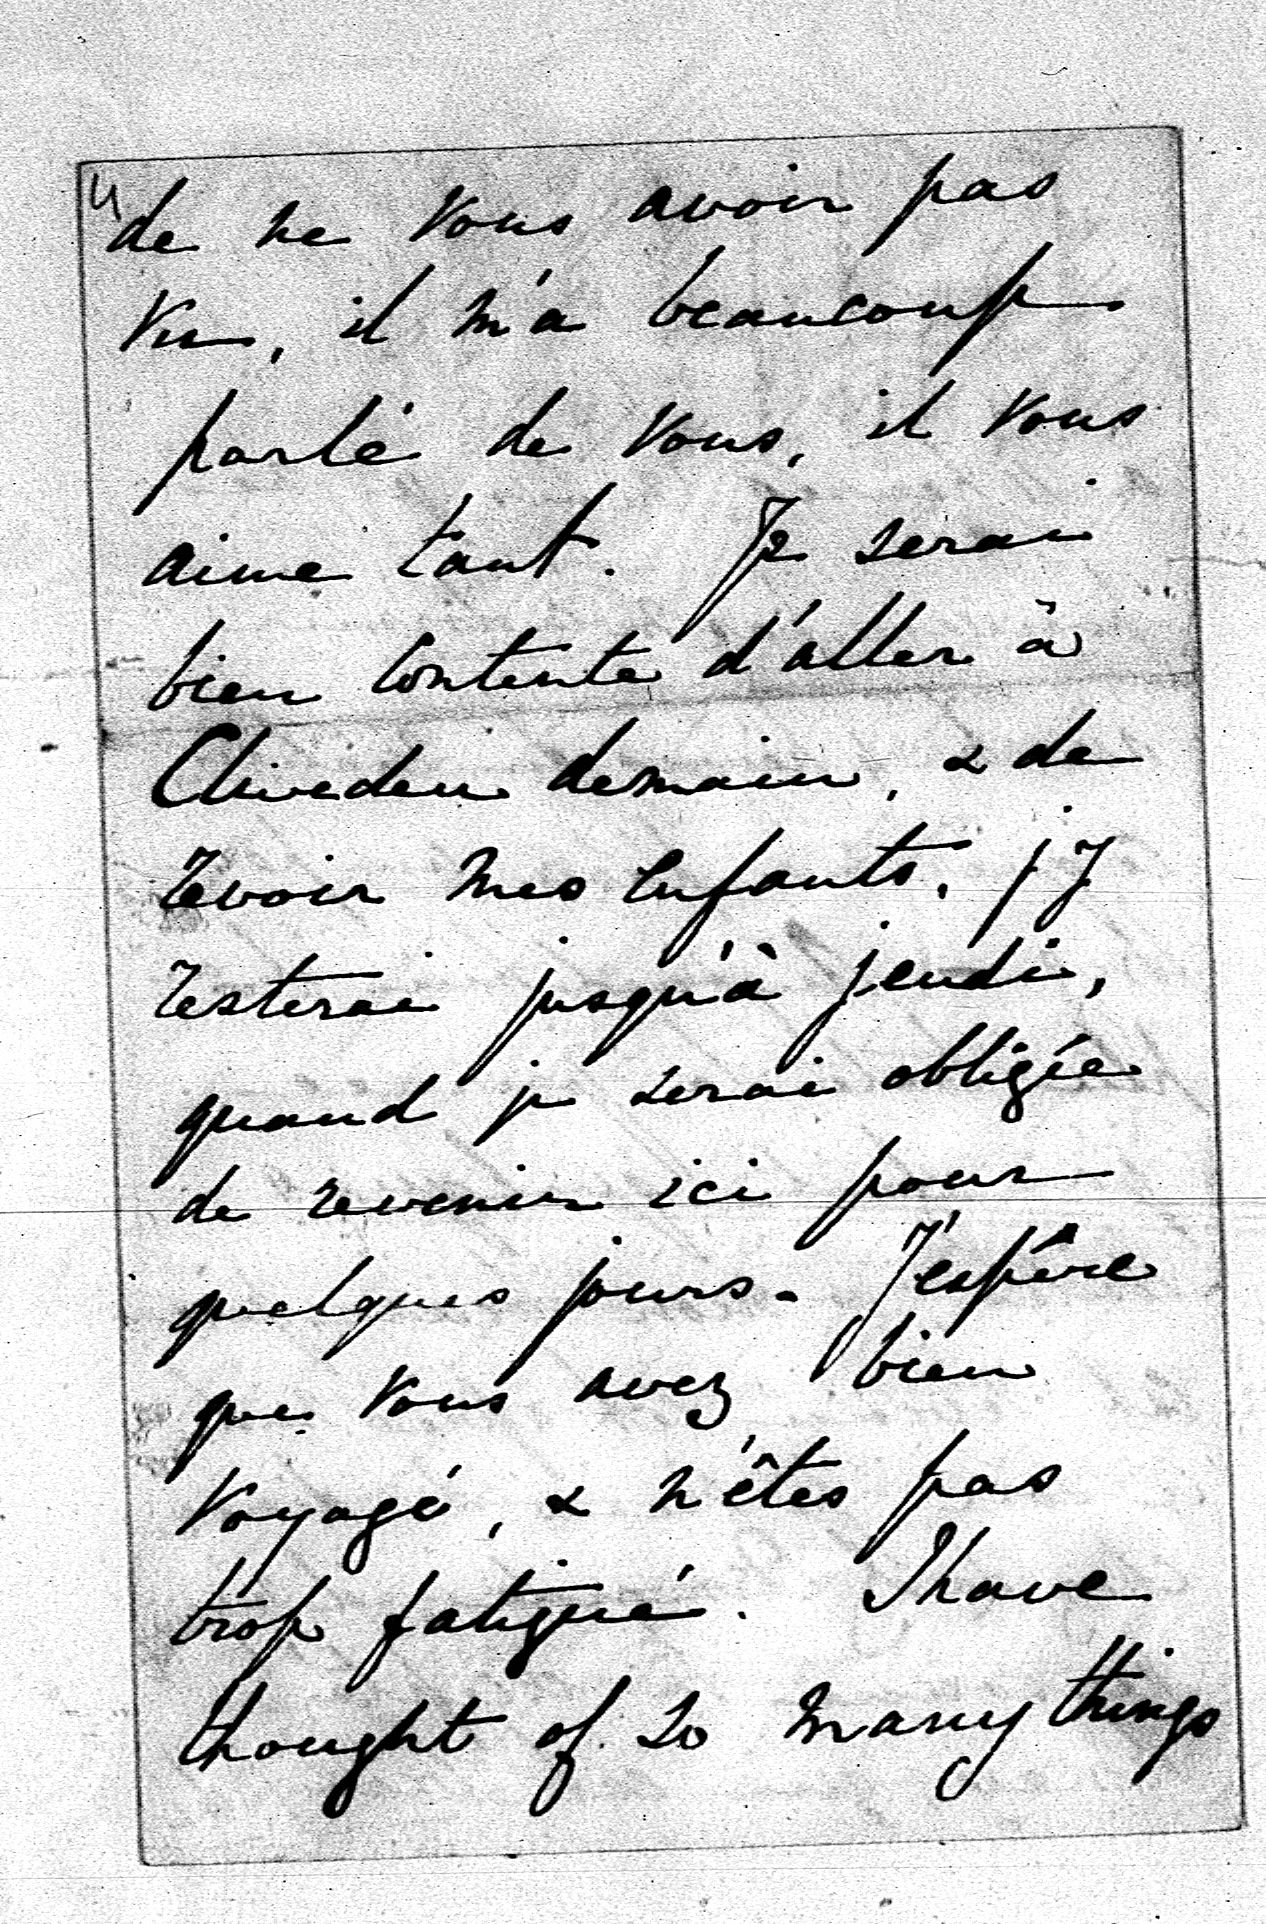 de ne vous avoir pas
vu, il m'a beaucoup
parlé de vous, il vous
aime tant. Je serai
bien contente d'aller à
Cliveden demain, & de
revoir mes enfants, j'y
resterai jusqu'à jeudi,
quand je serai obligée
de revenir ici pour
quelques jours. J'espère
que vous avez bien
voyagé, & n'êtes pas
trop fatigué. I have
thought of so many things